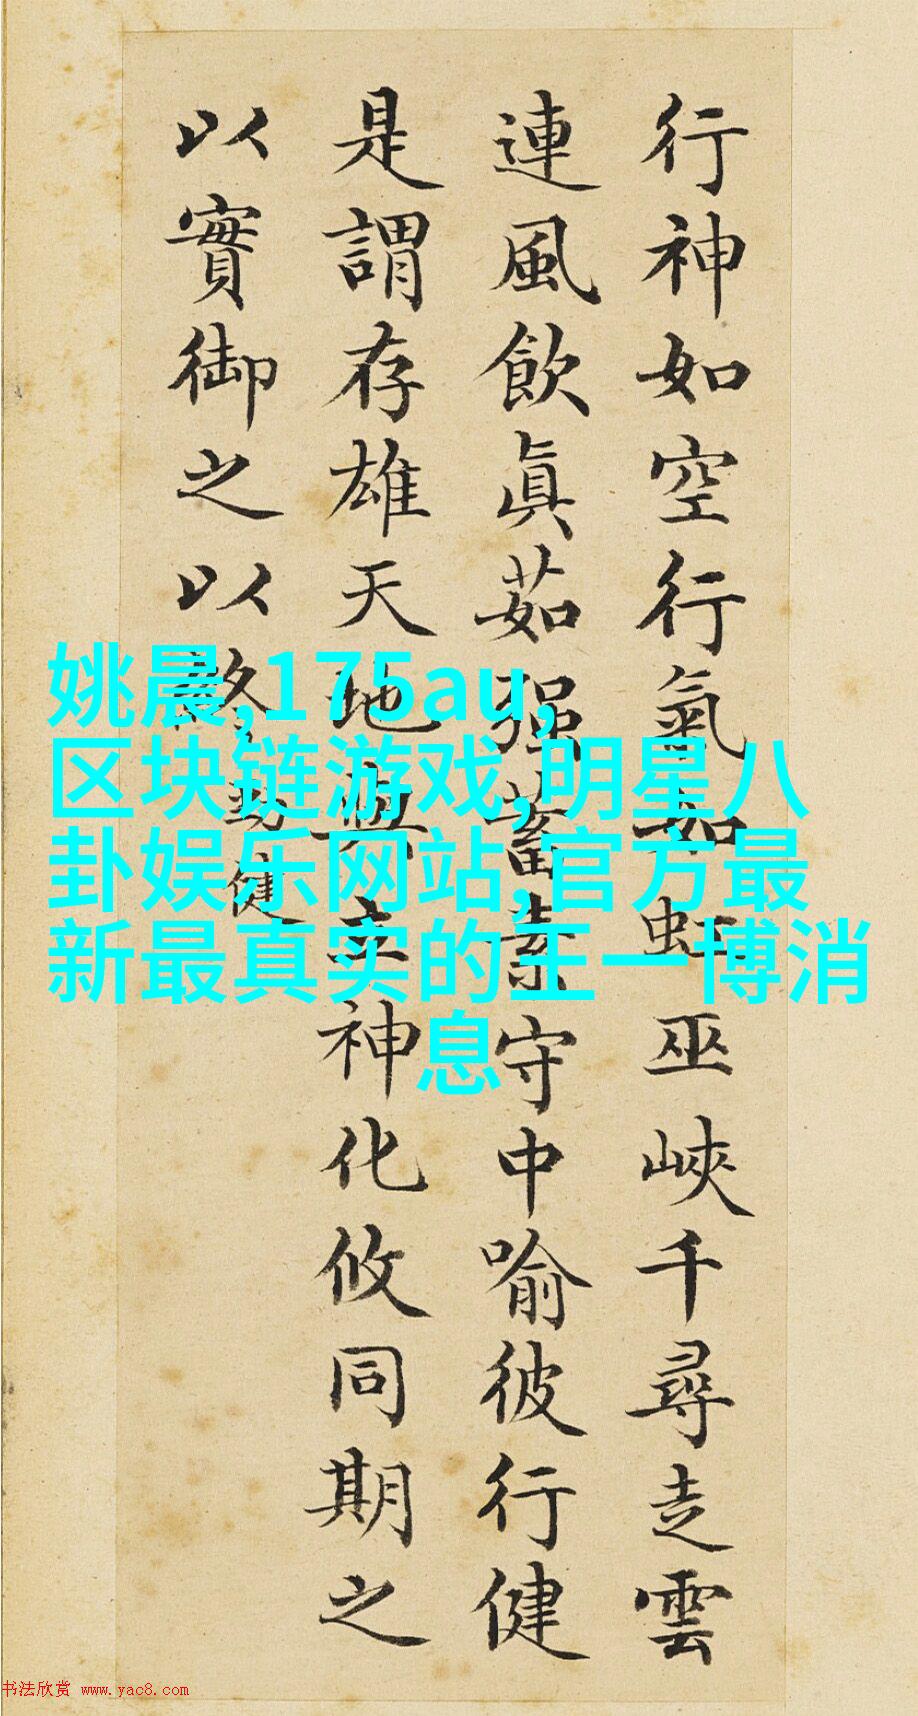 行神如空行氣如虹巫峽千尋走雲
連風飲眞茹强蓄素守中喻彼行健
是謂存雄天地與立神化攸同期之
以實御之以終
勁健
姚晨,175au,
区块链游戏,明星八
卦娱乐网站,官方最
新最真实的王一博消
息
书法欣赏 www.yac8.com